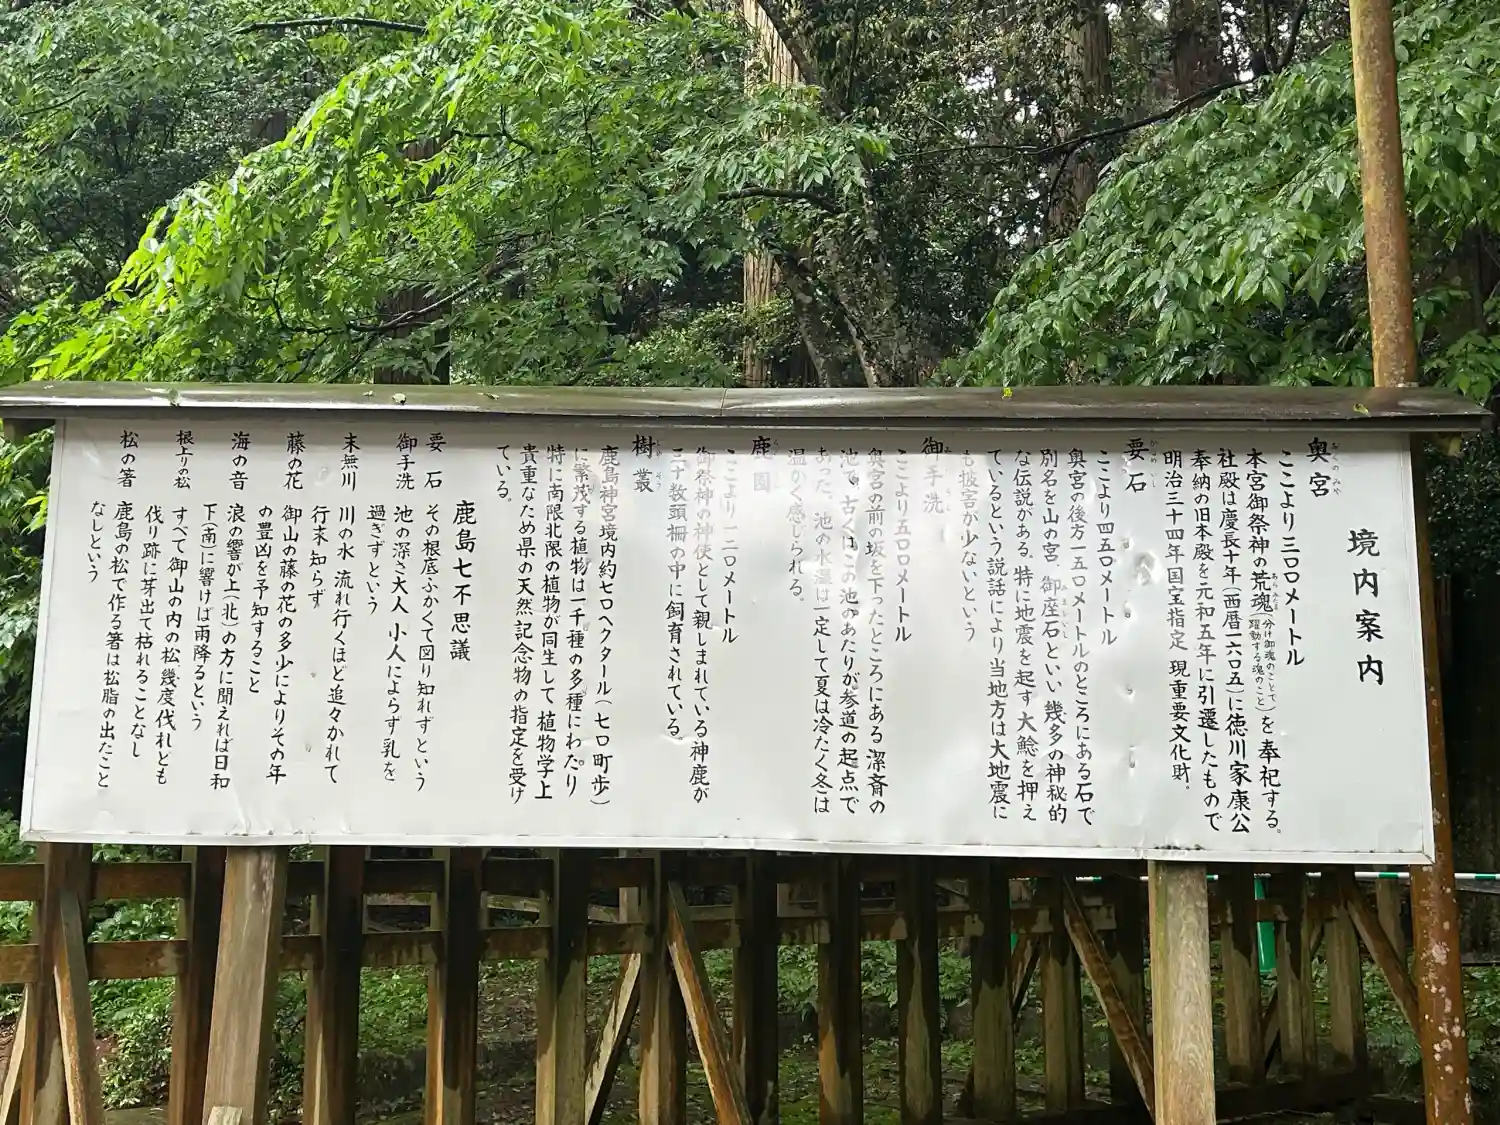 境内案内
奥宮
おくのみや
ここより三〇〇メートル
本宮御祭神の荒魂(分け御魂のことで躍動する魂のこと)を奉祀する。
あらみたま
社殿は慶長十年(西暦一六〇五)に徳川家康公
奉納の旧本殿を元和五年に引遷したもので
明治三十四年国宝指定 現重要文化財。
要石
かなめいし
ここより四五〇メートル
奥宮の後方一五〇メートルのところにある石で
別名を山の宮、御座石といい幾多の神秘的
な伝説がある。特に地震を起す大鯰を押え
ているという説話により当地方は大地震に
も被害が少ないという
御手洗
ここより五〇〇メートル
奥宮の前の坂を下ったところにある潔斎の
池で、古くはこの池のあたりが参道の起点で
あった。池の水温は一定して夏は冷たく冬は
温かく感じられる。
鹿園
ここより一二〇メートル
御祭神の神使として親しまれている神鹿が
三十数頭柵の中に飼育されている。
樹叢
鹿島神宮境内約七〇ヘクタール(七〇町歩)
に繁茂する植物は一千種の多種にわたり
特に南限北限の植物が同生して植物学上
貴重なため県の天然記念物の指定を受け
ている。
鹿島七不思議
要石 その根底ふかくて図り知れずという
御手洗 池の深さ大人小人によらず乳を
過ぎずという
末無川 川の水 流れ行くほど追々かれて
行末知らず
藤の花 御山の藤の花の多少によりその年
の豊凶を予知すること
海の音 浪の響が上(北)の方に聞えれば日和
下(南)に響けば雨降るという
根上りの松 すべて御山の内の松幾度伐れども
伐り跡に芽出て枯れることなし
松の箸 鹿島の松で作る箸は松脂の出たこと
なしという